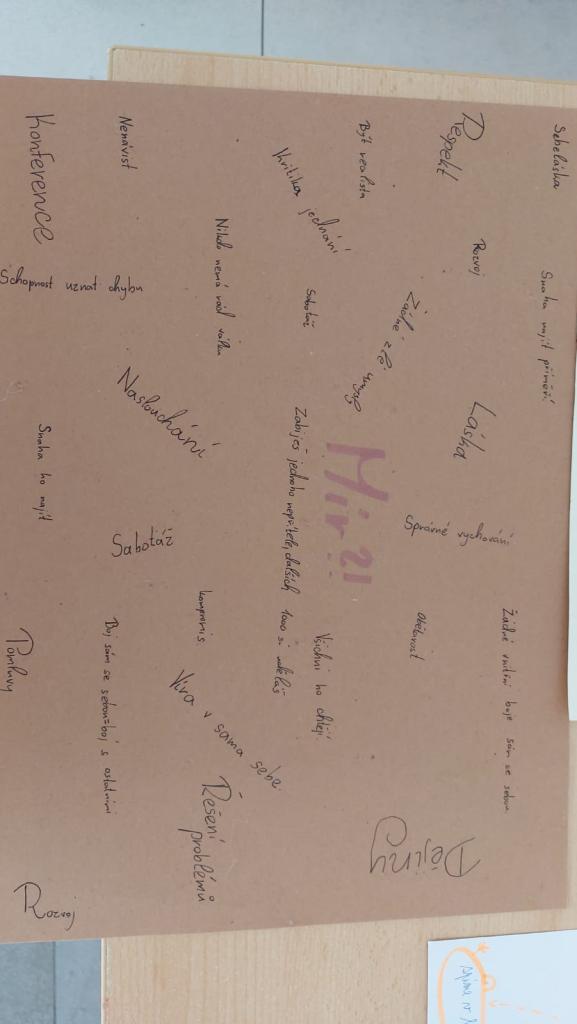 Sebeláska
Respekt
Být realista
Kritika jednání
Nenávist
Konference
Rozvoj
Snaha najít příměří
Žádné zlé úmysly
Sabotáž
Nikdo nemá rád válku
Schopnost uznat chybu
Naslouchání
Láska
Mír 21
Zabiješ jednoho nepřítele, dalších 1000 si uděláš
Snaha ho najít
Správné vychování
Sabotáž
Obětavost
Všichni ho chtějí.
kompromis
Žádné vnitřní boje sám se sebou
Boj sám se sebou=boj s ostatními
Pomluvy
Víra v sama sebe
Řešení
problémů
Dějiny
Rozvoj